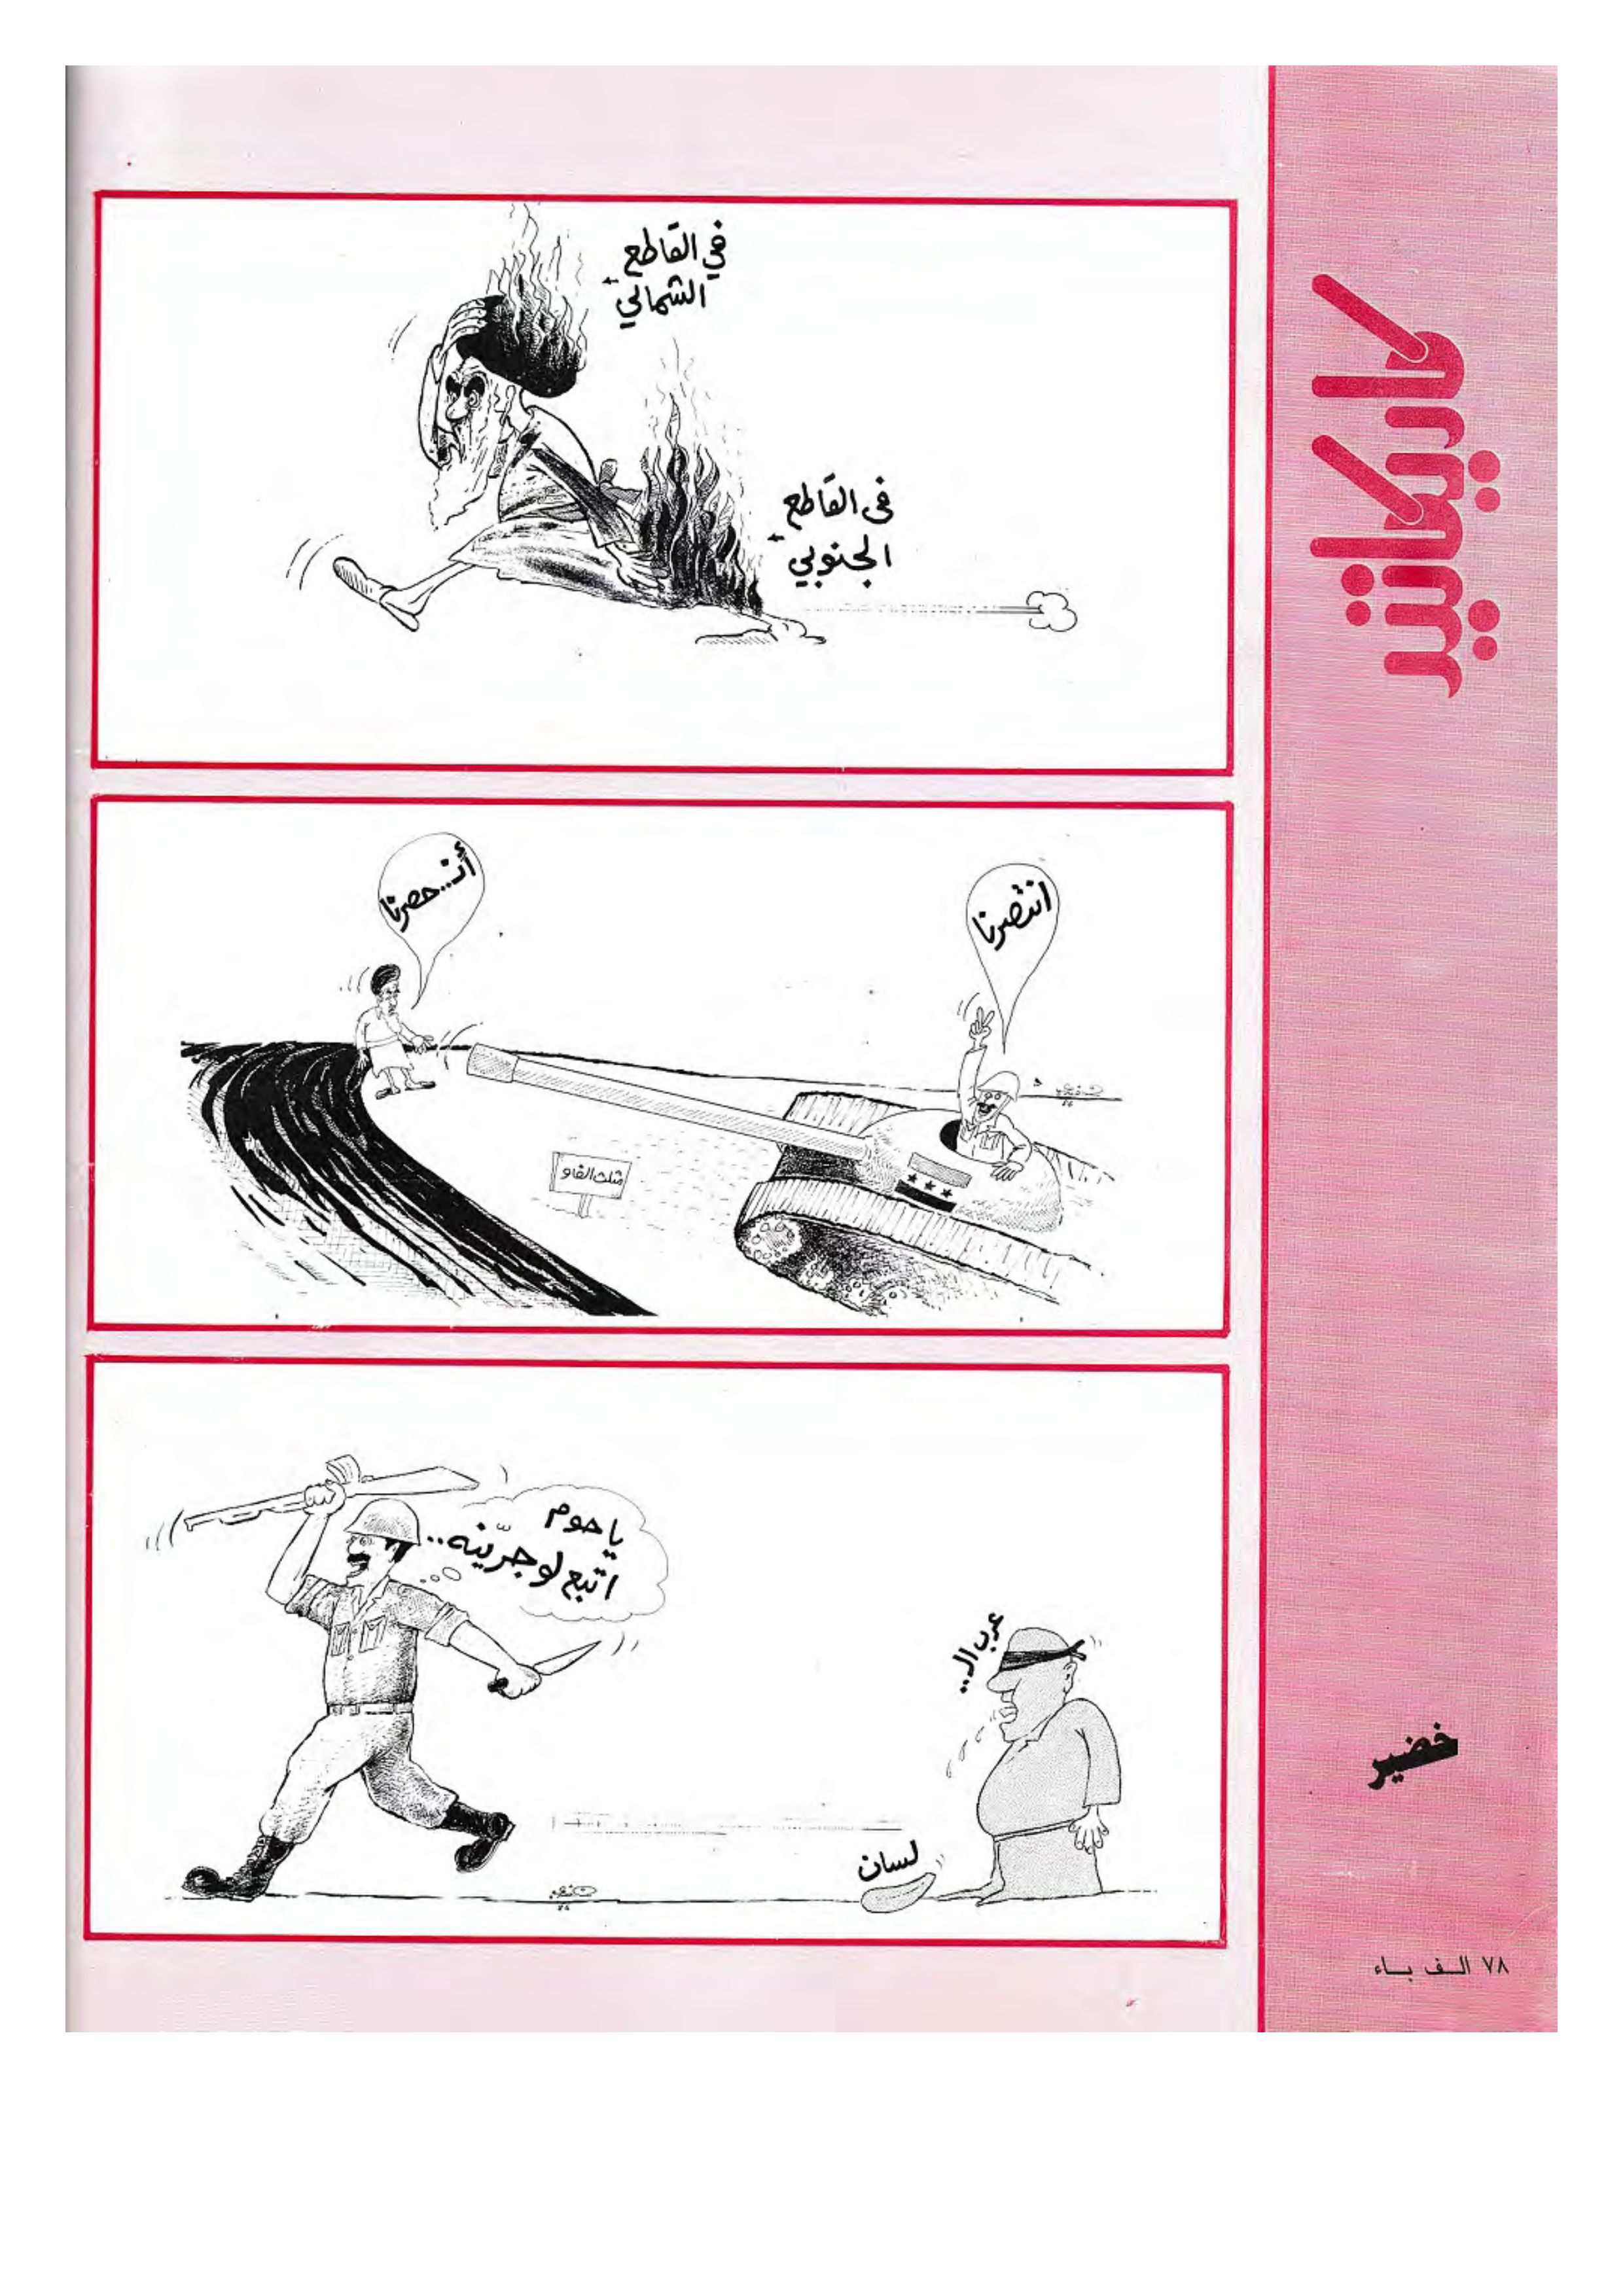 كاريكاتير
في القاطع
الشمالي
في القاطع
الجنوبي
انتصرنا
أنـ..حصرنا
مثلث الفاو
يا حوم
اتبع لو جرّينه..
عرب الـ..
لسان
خضير
٧٨ الف باء